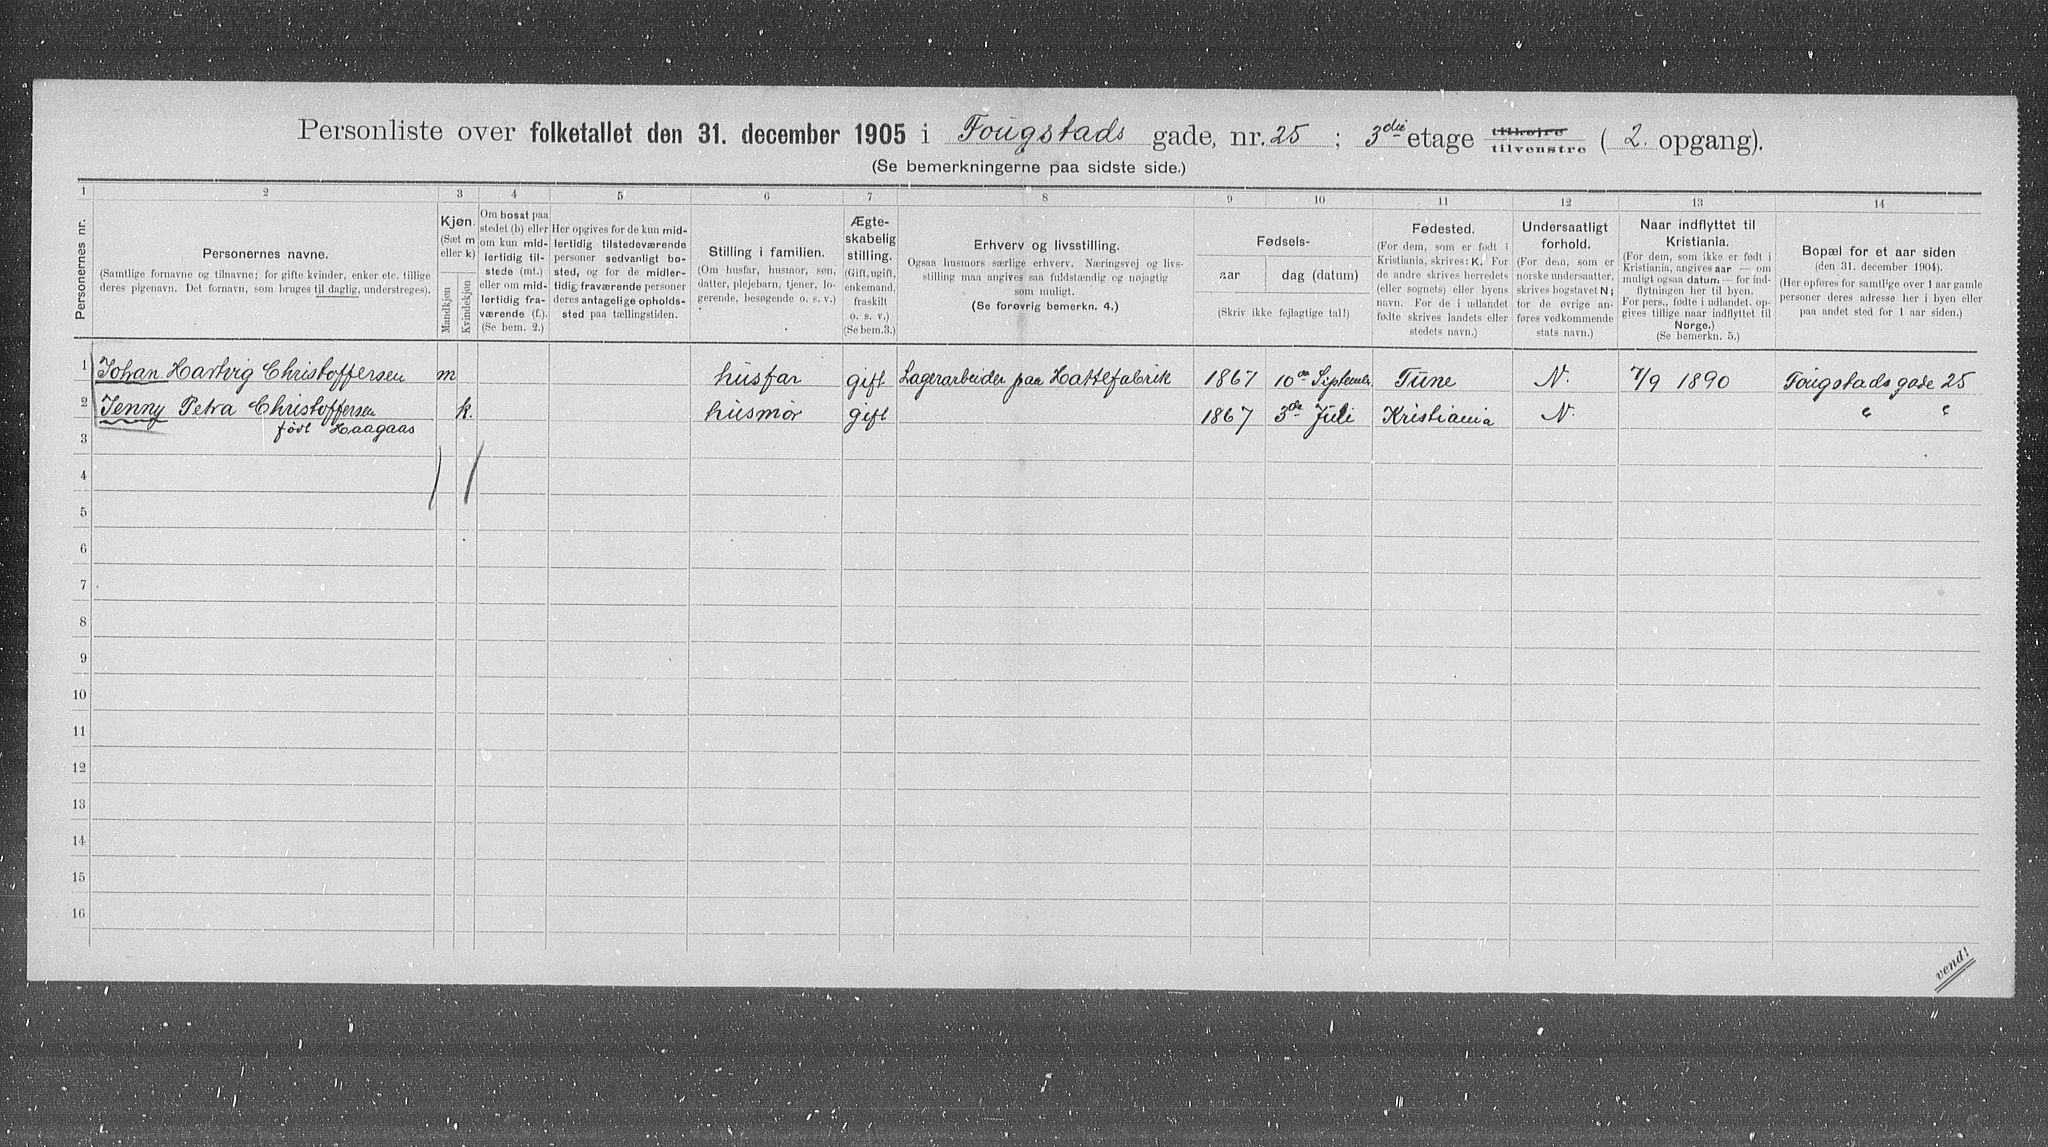 Personliste over folketallet den 31. december 1905 i Fougstads gade, nr. 25 ; 3die etage tilhøire tilvenstre ( 2. opgang).
(Se bemerkningerne paa sidste side.)
1 2 3 4 5 6 7 8 9 10 11 12 13 14
Personernes nr.
Personernes navne.
(Samtlige fornavne og tilnavne; for gifte kvinder, enker etc. tillige
deres pigenavn. Det fornavn, som bruges til daglig, understreges).
Kjøn.
(Sæt m
eller k)
Mandkjøn
Kvindekjøn
Om bosat paa
stedet (b) eller
om kun mid-
lertidig til-
stede (mt.)
eller om mid-
lertidig fra-
værende (f.).
(Se bem. 2.)
Her opgives for de kun mid-
lertidig tilstedeværende
personer sedvanligt bo-
sted, og for de midler-
tidig fraværende personer
deres antagelige opholds-
sted paa tællingstiden.
Stilling i familien.
(Om husfar, husmor, søn,
datter, plejebarn, tjener, lo-
gerende, besøgende o. s. v.)
Ægte-
skabelig
stilling.
(Gift, ugift,
enkemand,
fraskilt
o. s. v.)
(Se bem.3.)
Erhverv og livsstilling.
Ogsaa husmors særlige erhverv. Næringsvej og livs-
stilling maa angives saa fuldstændig og nøjagtig
som muligt.
(Se forøvrig bemerkn. 4.)
Fødsels-
aar
dag (datum)
(Skriv ikke fejlagtige tal!)
Fødested.
(For dem, som er født i
Kristiania, skrives: K. For
de andre skrives herredets
(eller sognets) eller byens
navn. For de i udlandet
fødte skrives landets eller
stedets navn.)
Undersaatligt
forhold.
(For dem, som er
norske undersaatter,
skrives bogstavet N;
for de øvrige an-
føres vedkommende
stats navn.)
Naar indflyttet til
Kristiania.
(For dem, som ikke er født i
Kristiania, angives aar — om
muligt ogsaa datum — for ind-
flytningen her til byen.
For pers., fødte i udlandet, op-
gives tillige naar indflyttet til
Norge.)
(Se bemerkn. 5.)
Bopæl for et aar siden
(den 31. december 1904).
(Her opføres for samtlige over 1 aar gamle
personer deres adresse her i byen eller
paa andet sted for 1 aar siden.)
1 Johan Hartvig Christoffersen m husfar gift Lagerarbeider paa Hattefabrik 1867 10de September Tune N. 7/9 1890 Fougstads gade 25
2 Jenny Petra Christoffersen k. husmor gift 1867 3de Juli Kristiania N. " "
født Haagaas
3
4
5
6
7
8
9
10
11
12
13
14
15
16
vend!